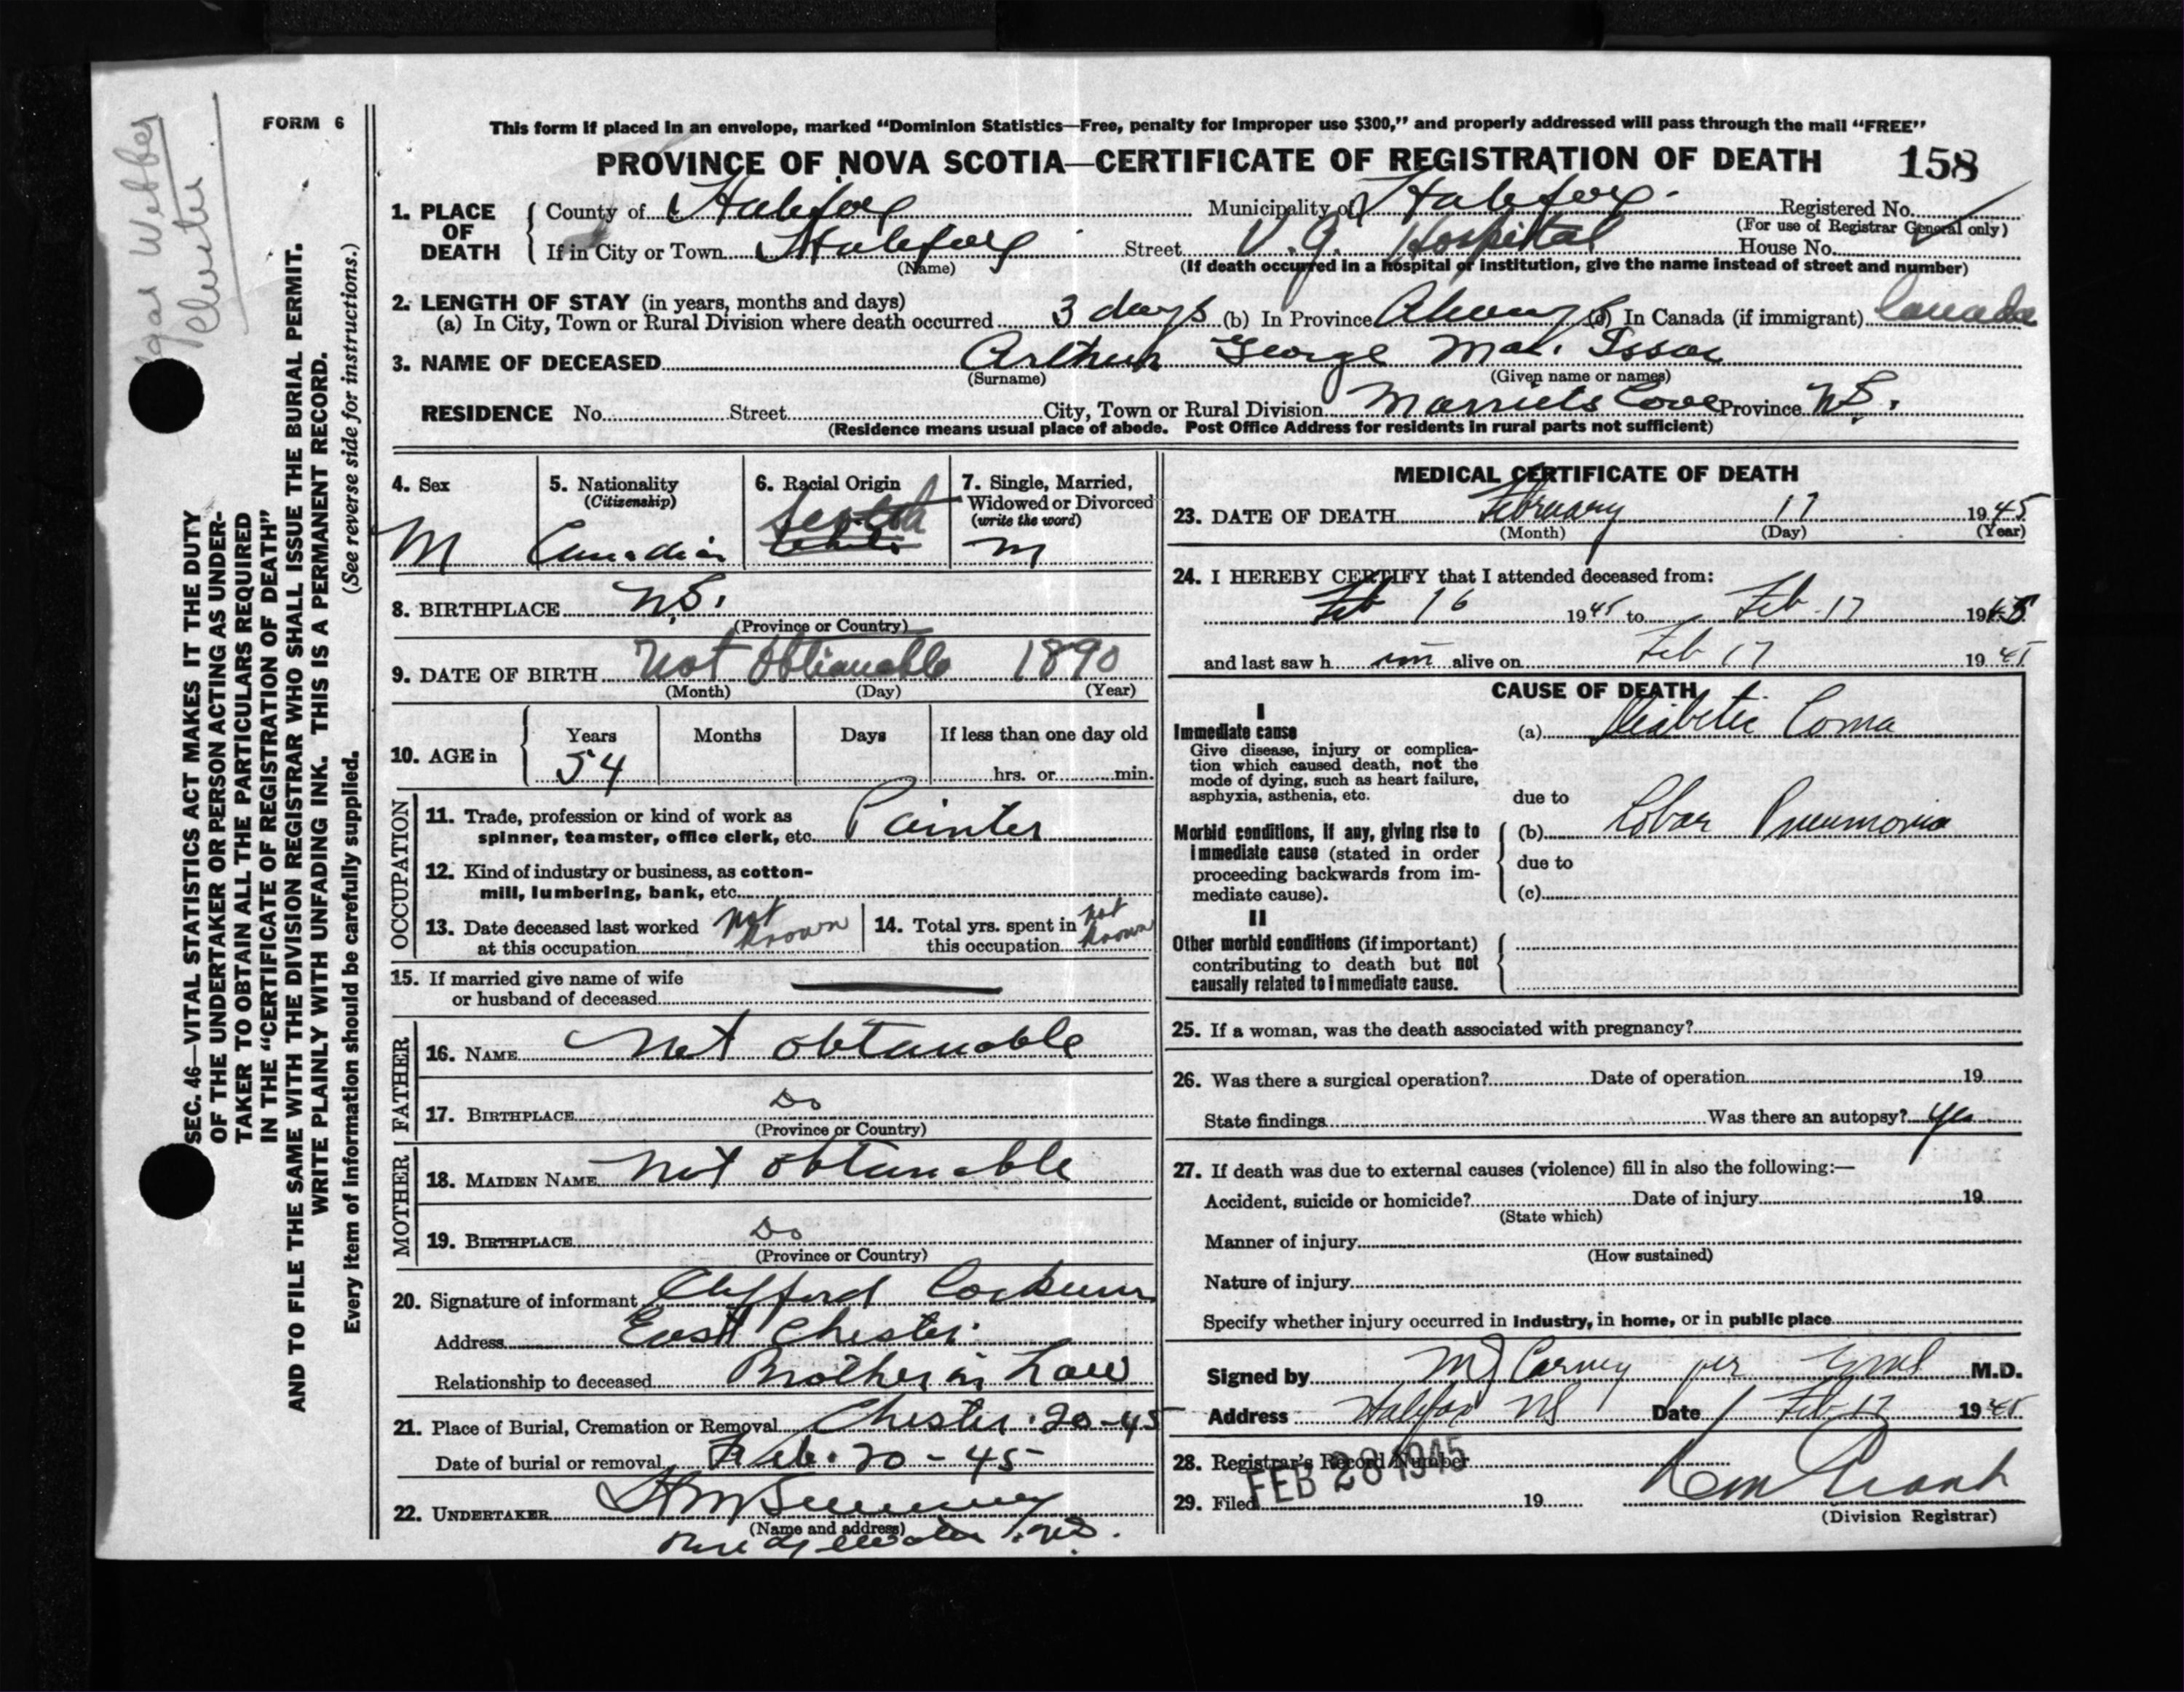 FORM 6
This form if placed in an envelope, marked “Dominion Statistics—Free, penalty for improper use $300,” and properly addressed will pass through the mail “FREE”
PROVINCE OF NOVA SCOTIA—CERTIFICATE OF REGISTRATION OF DEATH 158
1. PLACE OF DEATH
County of Halifax Municipality of Halifax Registered No.
(For use of Registrar General only)
If in City or Town Halifax Street V.G. Hospital House No.
(Name) (If death occurred in a hospital or institution, give the name instead of street and number)
2. LENGTH OF STAY (in years, months and days)
(a) In City, Town or Rural Division where death occurred 3 days (b) In Province Always (c) In Canada (if immigrant) Canada
3. NAME OF DECEASED Arthur George Mac. Issac
(Surname) (Given name or names)
RESIDENCE No. Street City, Town or Rural Division Marriets Cove Province N.S.
(Residence means usual place of abode. Post Office Address for residents in rural parts not sufficient)
4. Sex
M
5. Nationality
(Citizenship)
Canadian
6. Racial Origin
Scotch
7. Single, Married,
Widowed or Divorced
(write the word)
M
8. BIRTHPLACE N.S.
(Province or Country)
9. DATE OF BIRTH Not Obtianable 1890
(Month) (Day) (Year)
10. AGE in
Years Months Days If less than one day old
54 hrs. or min.
OCCUPATION
11. Trade, profession or kind of work as
spinner, teamster, office clerk, etc. Painter
12. Kind of industry or business, as cotton-
mill, lumbering, bank, etc.
13. Date deceased last worked
at this occupation not known
14. Total yrs. spent in
this occupation not known
15. If married give name of wife
or husband of deceased
FATHER
16. NAME Not obtanable
17. BIRTHPLACE Do
(Province or Country)
MOTHER
18. MAIDEN NAME Not obtanable
19. BIRTHPLACE Do
(Province or Country)
20. Signature of informant Clifford
Address East Chester
Relationship to deceased Brother in Law
21. Place of Burial, Cremation or Removal Chester. 20-45
Date of burial or removal Feb. 20-45
22. UNDERTAKER
(Name and address)
Bridgewater N.S.
MEDICAL CERTIFICATE OF DEATH
23. DATE OF DEATH February 17 1945
(Month) (Day) (Year)
24. I HEREBY CERTIFY that I attended deceased from:
Feb 16 1945 to Feb. 17 1945
and last saw him alive on Feb 17 1945
CAUSE OF DEATH
I
Immediate cause
Give disease, injury or complica-
tion which caused death, not the
mode of dying, such as heart failure,
asphyxia, asthenia, etc.
(a) Diabetic Coma
due to
Morbid conditions, if any, giving rise to
immediate cause (stated in order
proceeding backwards from im-
mediate cause).
(b) Lobar Pneumonia
due to
(c)
II
Other morbid conditions (if important)
contributing to death but not
causally related to immediate cause.
25. If a woman, was the death associated with pregnancy?
26. Was there a surgical operation? Date of operation 19
State findings Was there an autopsy? Yes
27. If death was due to external causes (violence) fill in also the following:—
Accident, suicide or homicide? Date of injury 19
(State which)
Manner of injury
(How sustained)
Nature of injury
Specify whether injury occurred in industry, in home, or in public place
Signed by M J Carney per M.D.
Address Halifax NS Date Feb 17 1945
28. Registrar's Record Number
29. Filed FEB 28 1945 19
(Division Registrar)
SEC. 46—VITAL STATISTICS ACT MAKES IT THE DUTY
OF THE UNDERTAKER OR PERSON ACTING AS UNDER-
TAKER TO OBTAIN ALL THE PARTICULARS REQUIRED
IN THE “CERTIFICATE OF REGISTRATION OF DEATH”
AND TO FILE THE SAME WITH THE DIVISION REGISTRAR WHO SHALL ISSUE THE BURIAL PERMIT.
WRITE PLAINLY WITH UNFADING INK. THIS IS A PERMANENT RECORD.
Every item of information should be carefully supplied. (See reverse side for instructions.)
Webber
Chester